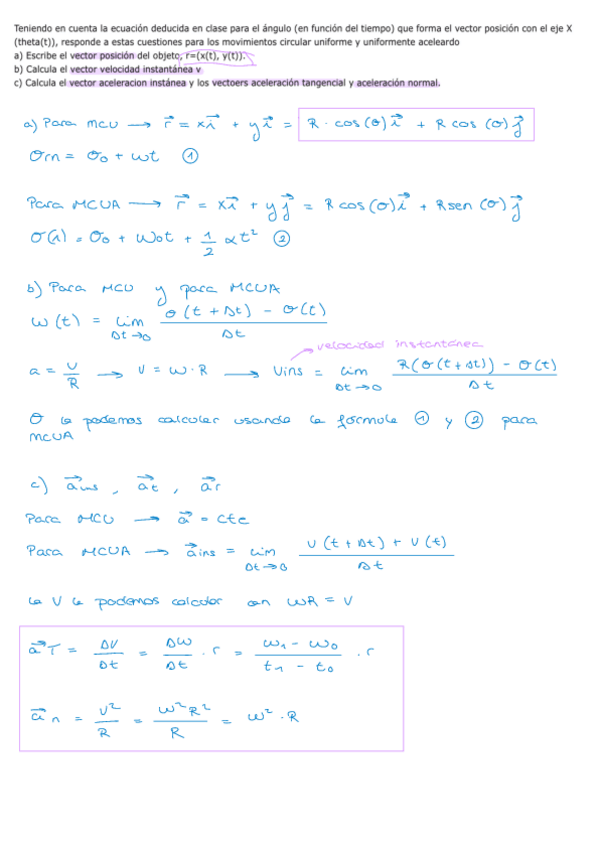 Teniendo en cuenta la ecuación deducida en clase para el ángulo (en función del tiempo) que forma el vector posición con el eje X
(theta(t)), responde a estas cuestiones para los movimientos circular uniforme y uniformente aceleardo
a) Escribe el vector posición del objeto, r=(x(t), y(t)).
b) Calcula el vector velocidad instantánea v
c) Calcula el vector aceleracion instánea y los vectoers aceleración tangencial y aceleración normal.
a) Para mcu → r⃗ = x i⃗ + y i⃗ = R · cos (θ) i⃗ + R cos (θ) j⃗
θm = θ₀ + wt ①
Para MCUA → r⃗ = x i⃗ + y j⃗ = R cos (θ) i⃗ + R sen (θ) j⃗
θ(1) = θ₀ + w₀t + 1/2 αt² ②
b) Para MCU y para MCUA
w(t) = lim Δt→0 θ(t + Δt) - θ(t) / Δt
velocidad instantánea
a = v/R → v = w · R → Vins = lim Δt→0 R(θ(t + Δt)) - θ(t) / Δt
θ la podemos calcular usando la fórmula ① y ② para
MCUA
c) a⃗ins , a⃗t , a⃗r
Para MCU → a⃗ = cte
Para MCUA → a⃗ins = lim Δt→0 v(t + Δt) + v(t) / Δt
la v la podemos calcular con wR = v
a⃗T = Δv/Δt = Δw/Δt · r = w₁ - w₀ / t₁ - t₀ · r
a⃗n = v²/R = w²R²/R = w² · R